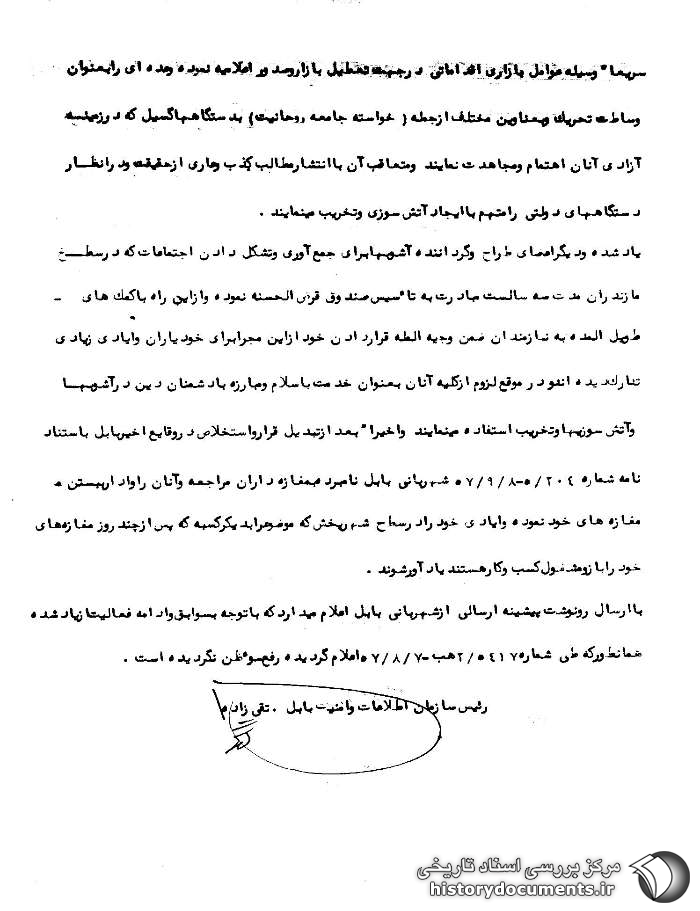 سریعا" وسیله عوامل بازاری اقداماتی درجهت تعطیل بازار وصدور اعلامیه نموده وعده ای رابعنوان
وساطت تحریک وبعناوین مختلف ازجمله ( خواسته جامعه روحانیت) بدستگاههاگسیل که درزمینه
آزادی آنان اهتمام ومجاهدت نمایند ومتعاقب آن باانتشارمطالب کذب وعاری ازحقیقت ودرانظار
دستگاههای دولتی رامتهم باایجاد آتش سوزی وتخریب مینمایند .
یاد شده ودیگراعضای طراح وگرداننده آشوبهابرای جمع آوری وتشکل دادن اجتماعات که درسطح
مازندران مدت سه سالست مبادرت به تاسیس صندوق قرض الحسنه نموده وازاین راه باکمک های -
طویل المده به نیازمندان ضمن وجیه المله قراردادن خود ازاین مجرابرای خود یاران وایادی زیادی
تدارکدیده اندودر موقع لزوم ازکلیه آنان بعنوان خدمت باسلام ومبارزه بادشمنان دین درآشوبها
وآتش سوزیهاوتخریب استفاده مینمایند واخیرا" بعد ازتبدیل قرارواستخلاص دروقایع اخیربابل باستناد
نامه شماره ۵/۲۰۴-۵۷/۹/۸ شهربانی بابل نامبرده بمغازه داران مراجعه وآنان راوادار ببستن
مغازه های خود نموده وایادی خود رادرسطح شهر پخش که بدیگرکسبه که پس ازچند روز مغازه های
خود رابازومشغول کسب وکارهستند یاد آورشوند .
باارسال رونوشت پیشینه ارسالی ازشهربانی بابل اعلام میدارد که باتوجه بسوابق وادامه فعالیتهایاد شده
همانطورکه طی شماره ۲/۵۴۱۷هب-۵۷/۸/۷ اعلام گردیده رفع سوءظن نگردیده است .
رئیس سازمان اطلاعات وامنیت بابل . تقی زاده
مرکز بررسی اسناد تاریخی
historydocuments.ir